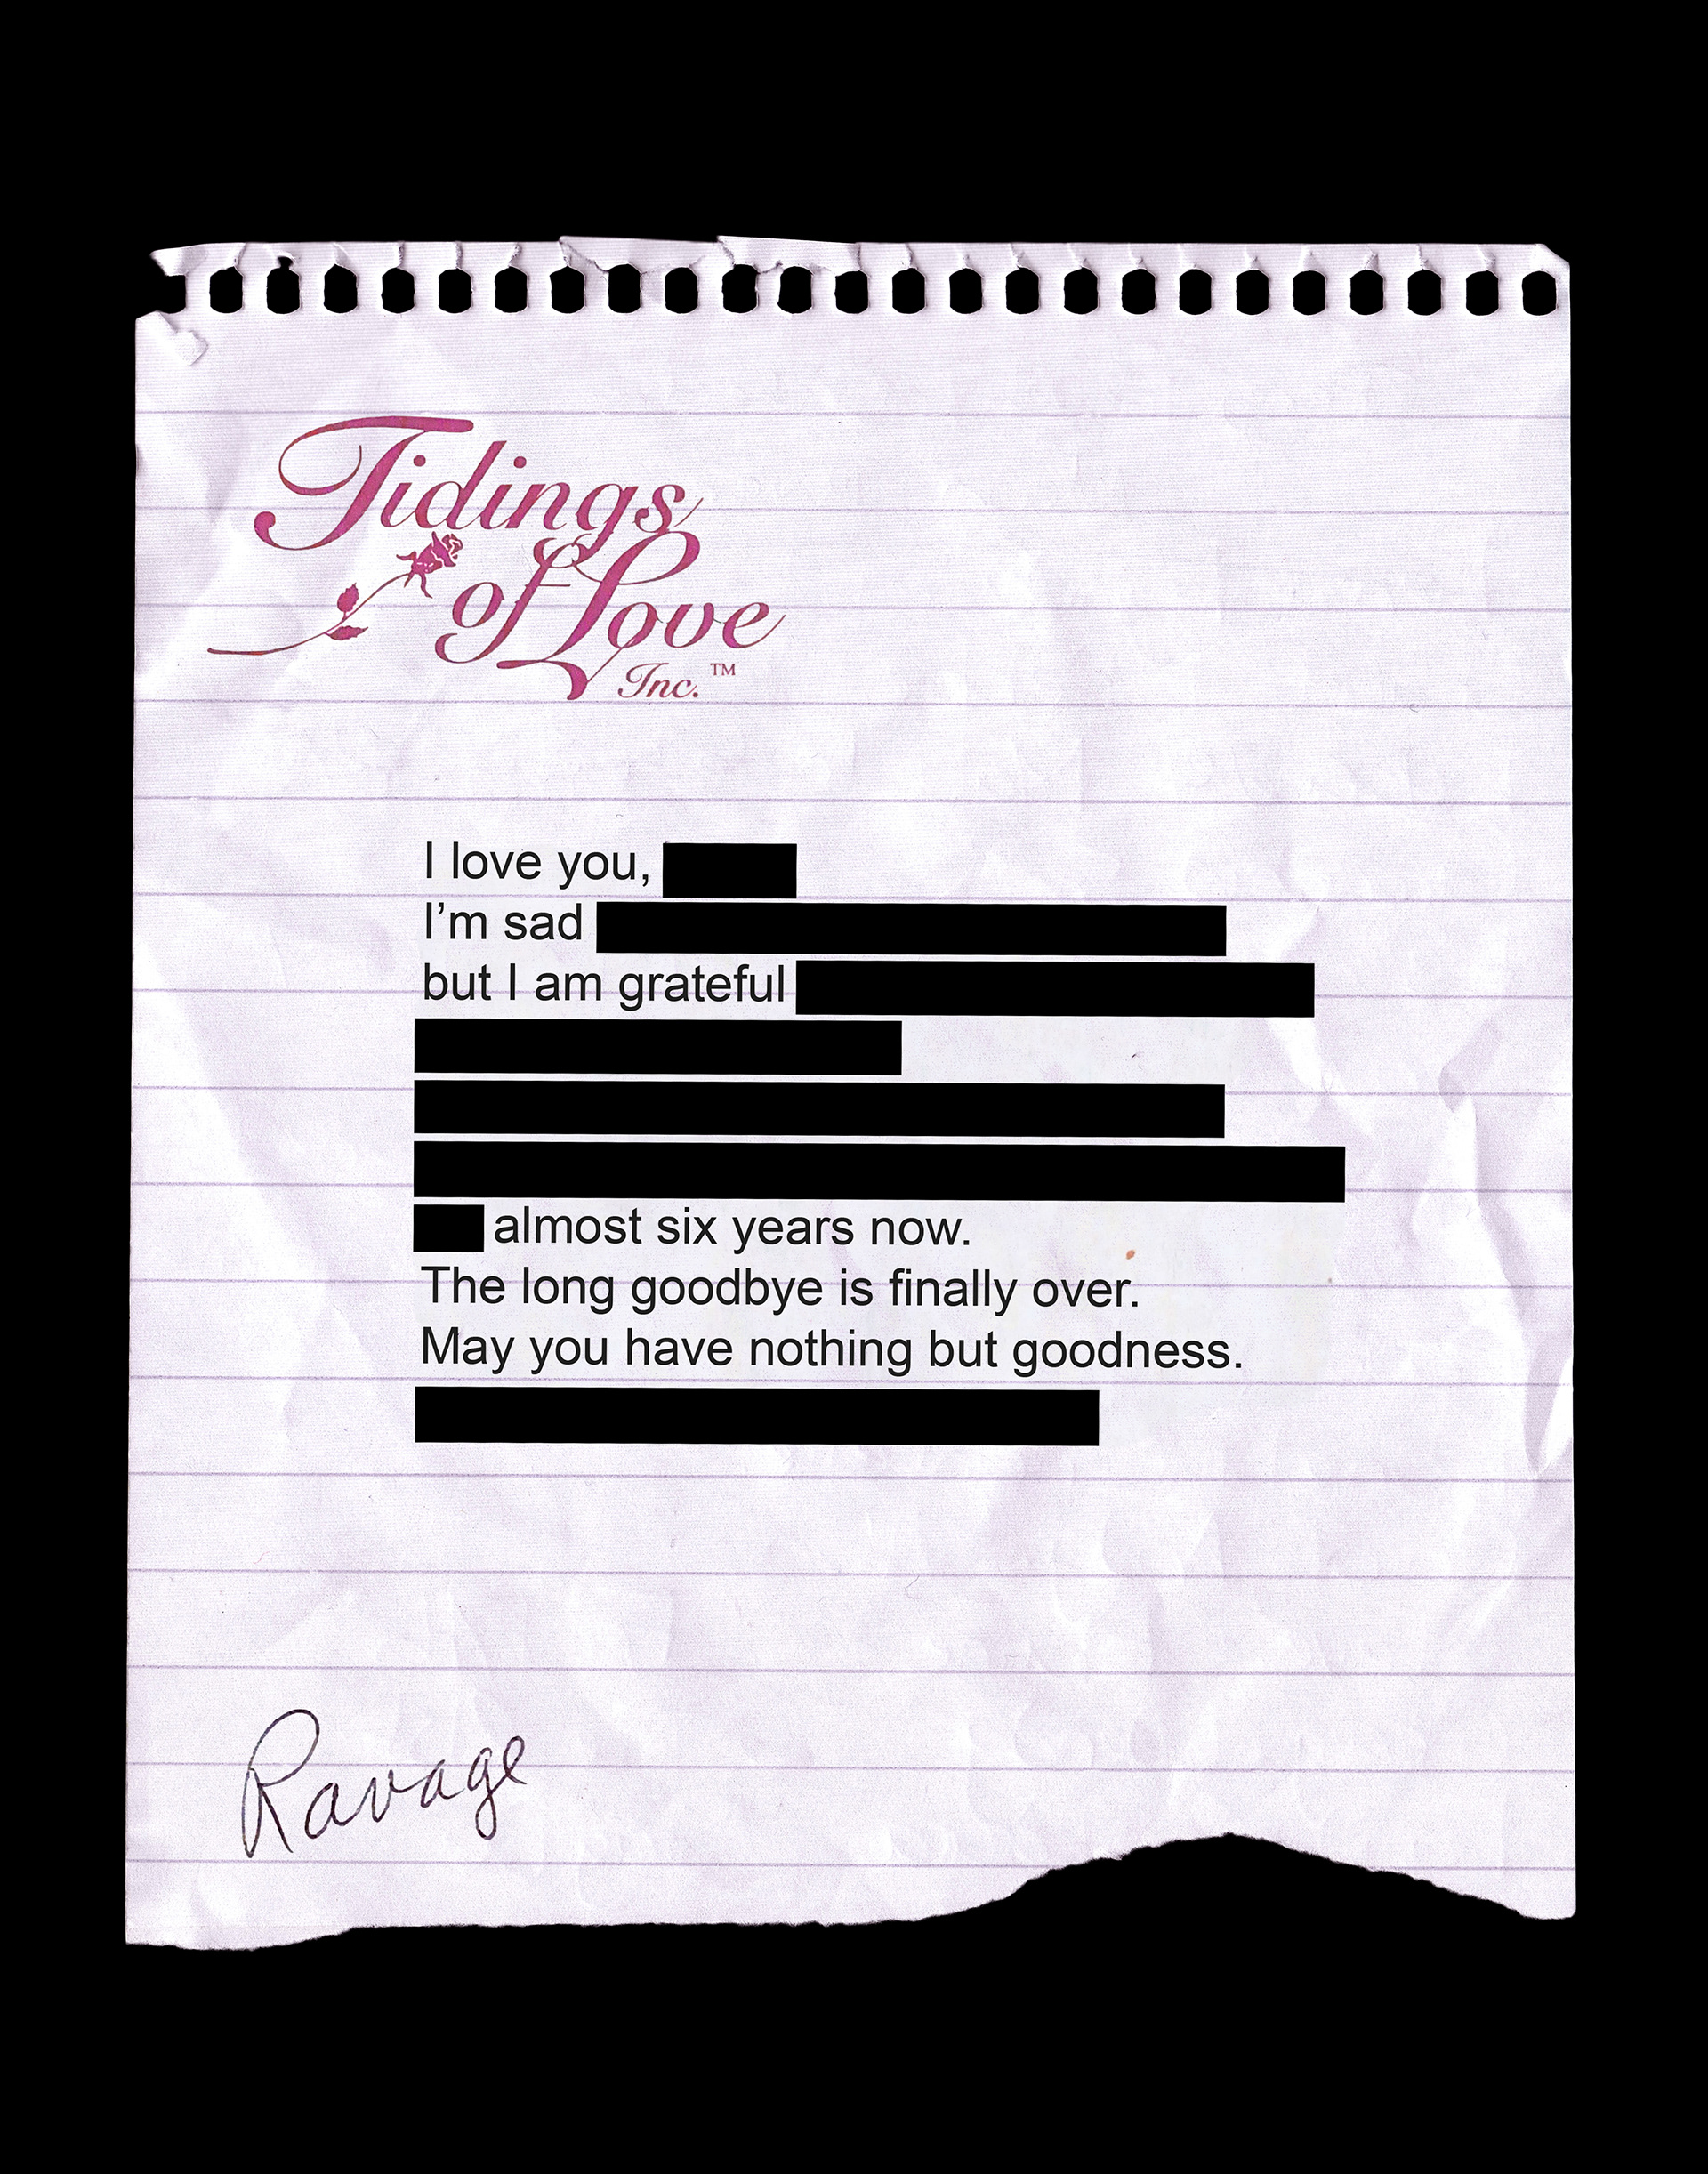 Tidings
of Love
Inc.™
I love you,
I’m sad
but I am grateful
almost six years now.
The long goodbye is finally over.
May you have nothing but goodness.
Ravage